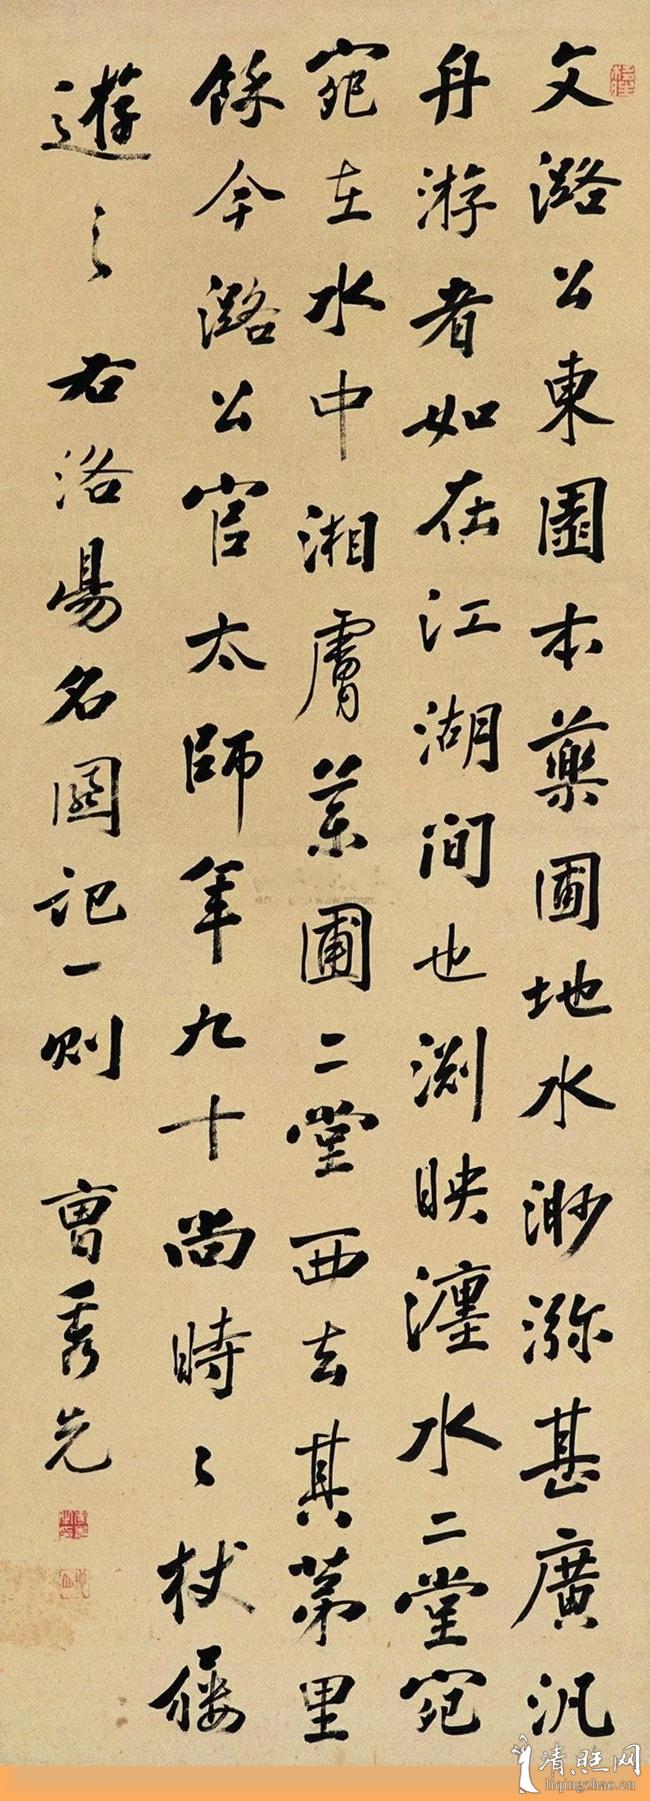 文潞公東園本藥圃地水渺瀰甚廣汎
舟游者如在江湖間也渕映瀍水二堂宛
宛在水中湘膚藥圃二堂西去其第里
餘今潞公官太師年九十尚時々杖屨
遊之右洛陽名園記一則 曹秀先
清旺网
liqingzhao.cn